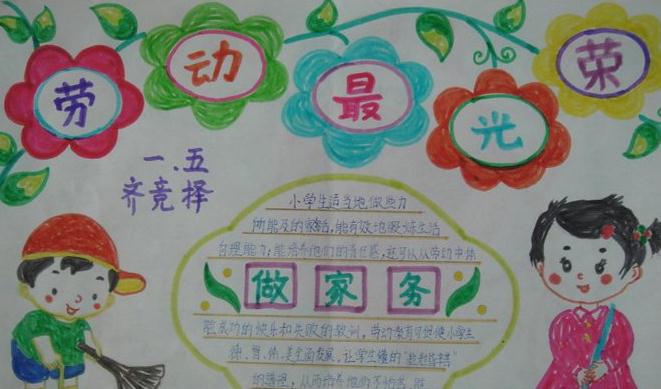 劳动最光荣
一、五
齐竞择
小学生适当地做些力
所能及的家活,能有效地锻炼生活
自理能力;能培养他们的责任感,还可以从劳动中体
做家务
验成功的快乐和失败的教训,劳动教育可促使小学生
德、智、体、美全面发展,让学生懂的
的道理,从而培养他们不怕苦、